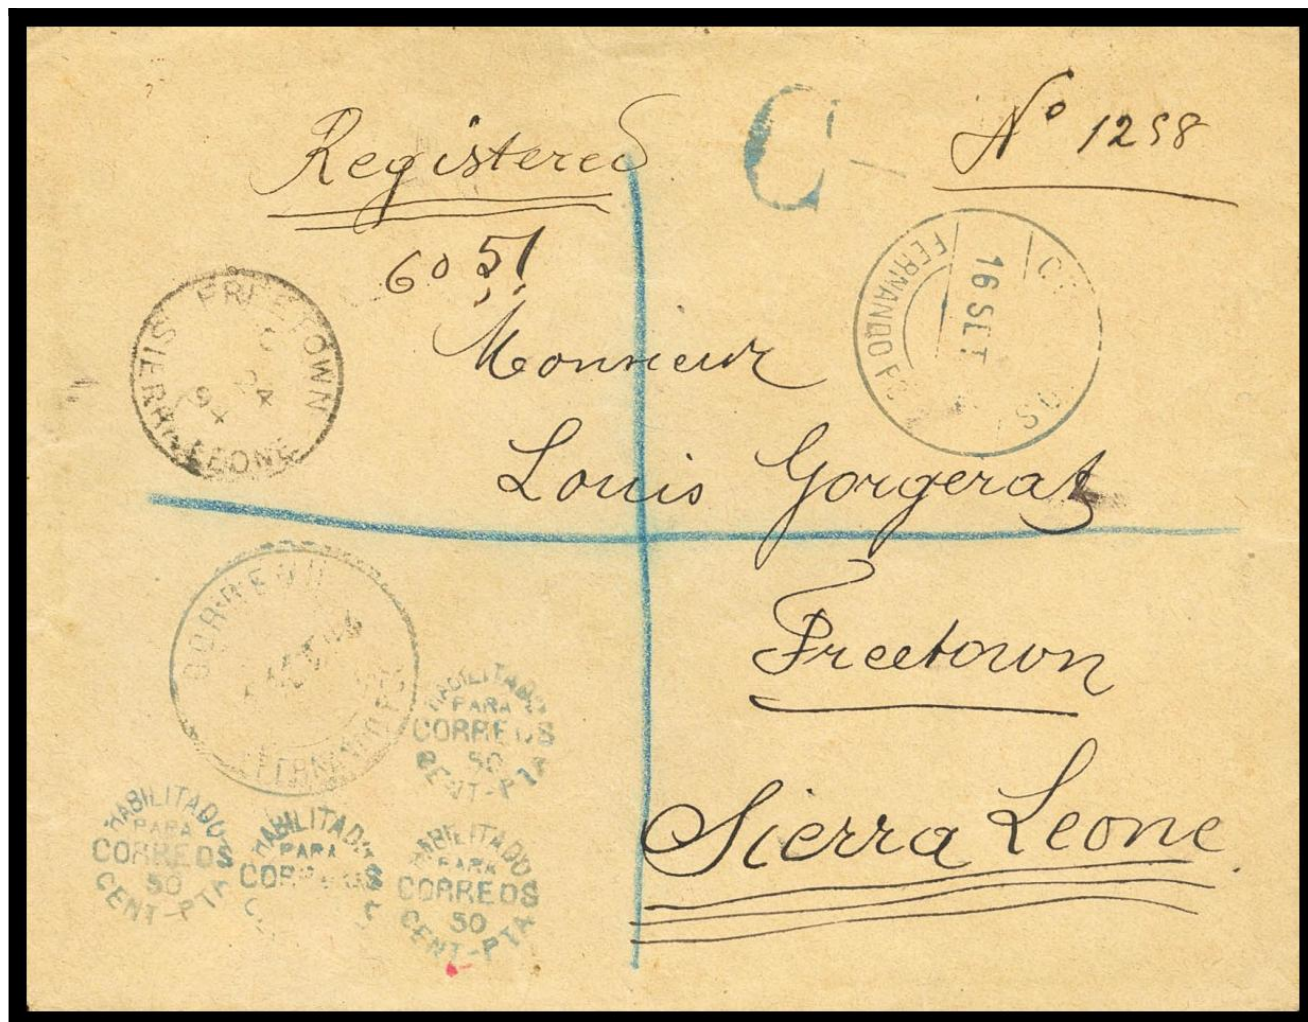 Registered
C
No 1258
60 51
FREETOWN
SIERRA LEONE
FERNANDO PO
16 SET
Monsieur
Louis Gorgerat
Freetown
Sierra Leone
HABILITADO
PARA
CORREOS
50
CENT-PTA
HABILITADO
PARA
CORREOS
50
CENT-PTA
HABILITADO
PARA
CORREOS
HABILITADO
PARA
CORREOS
50
CENT-PTA